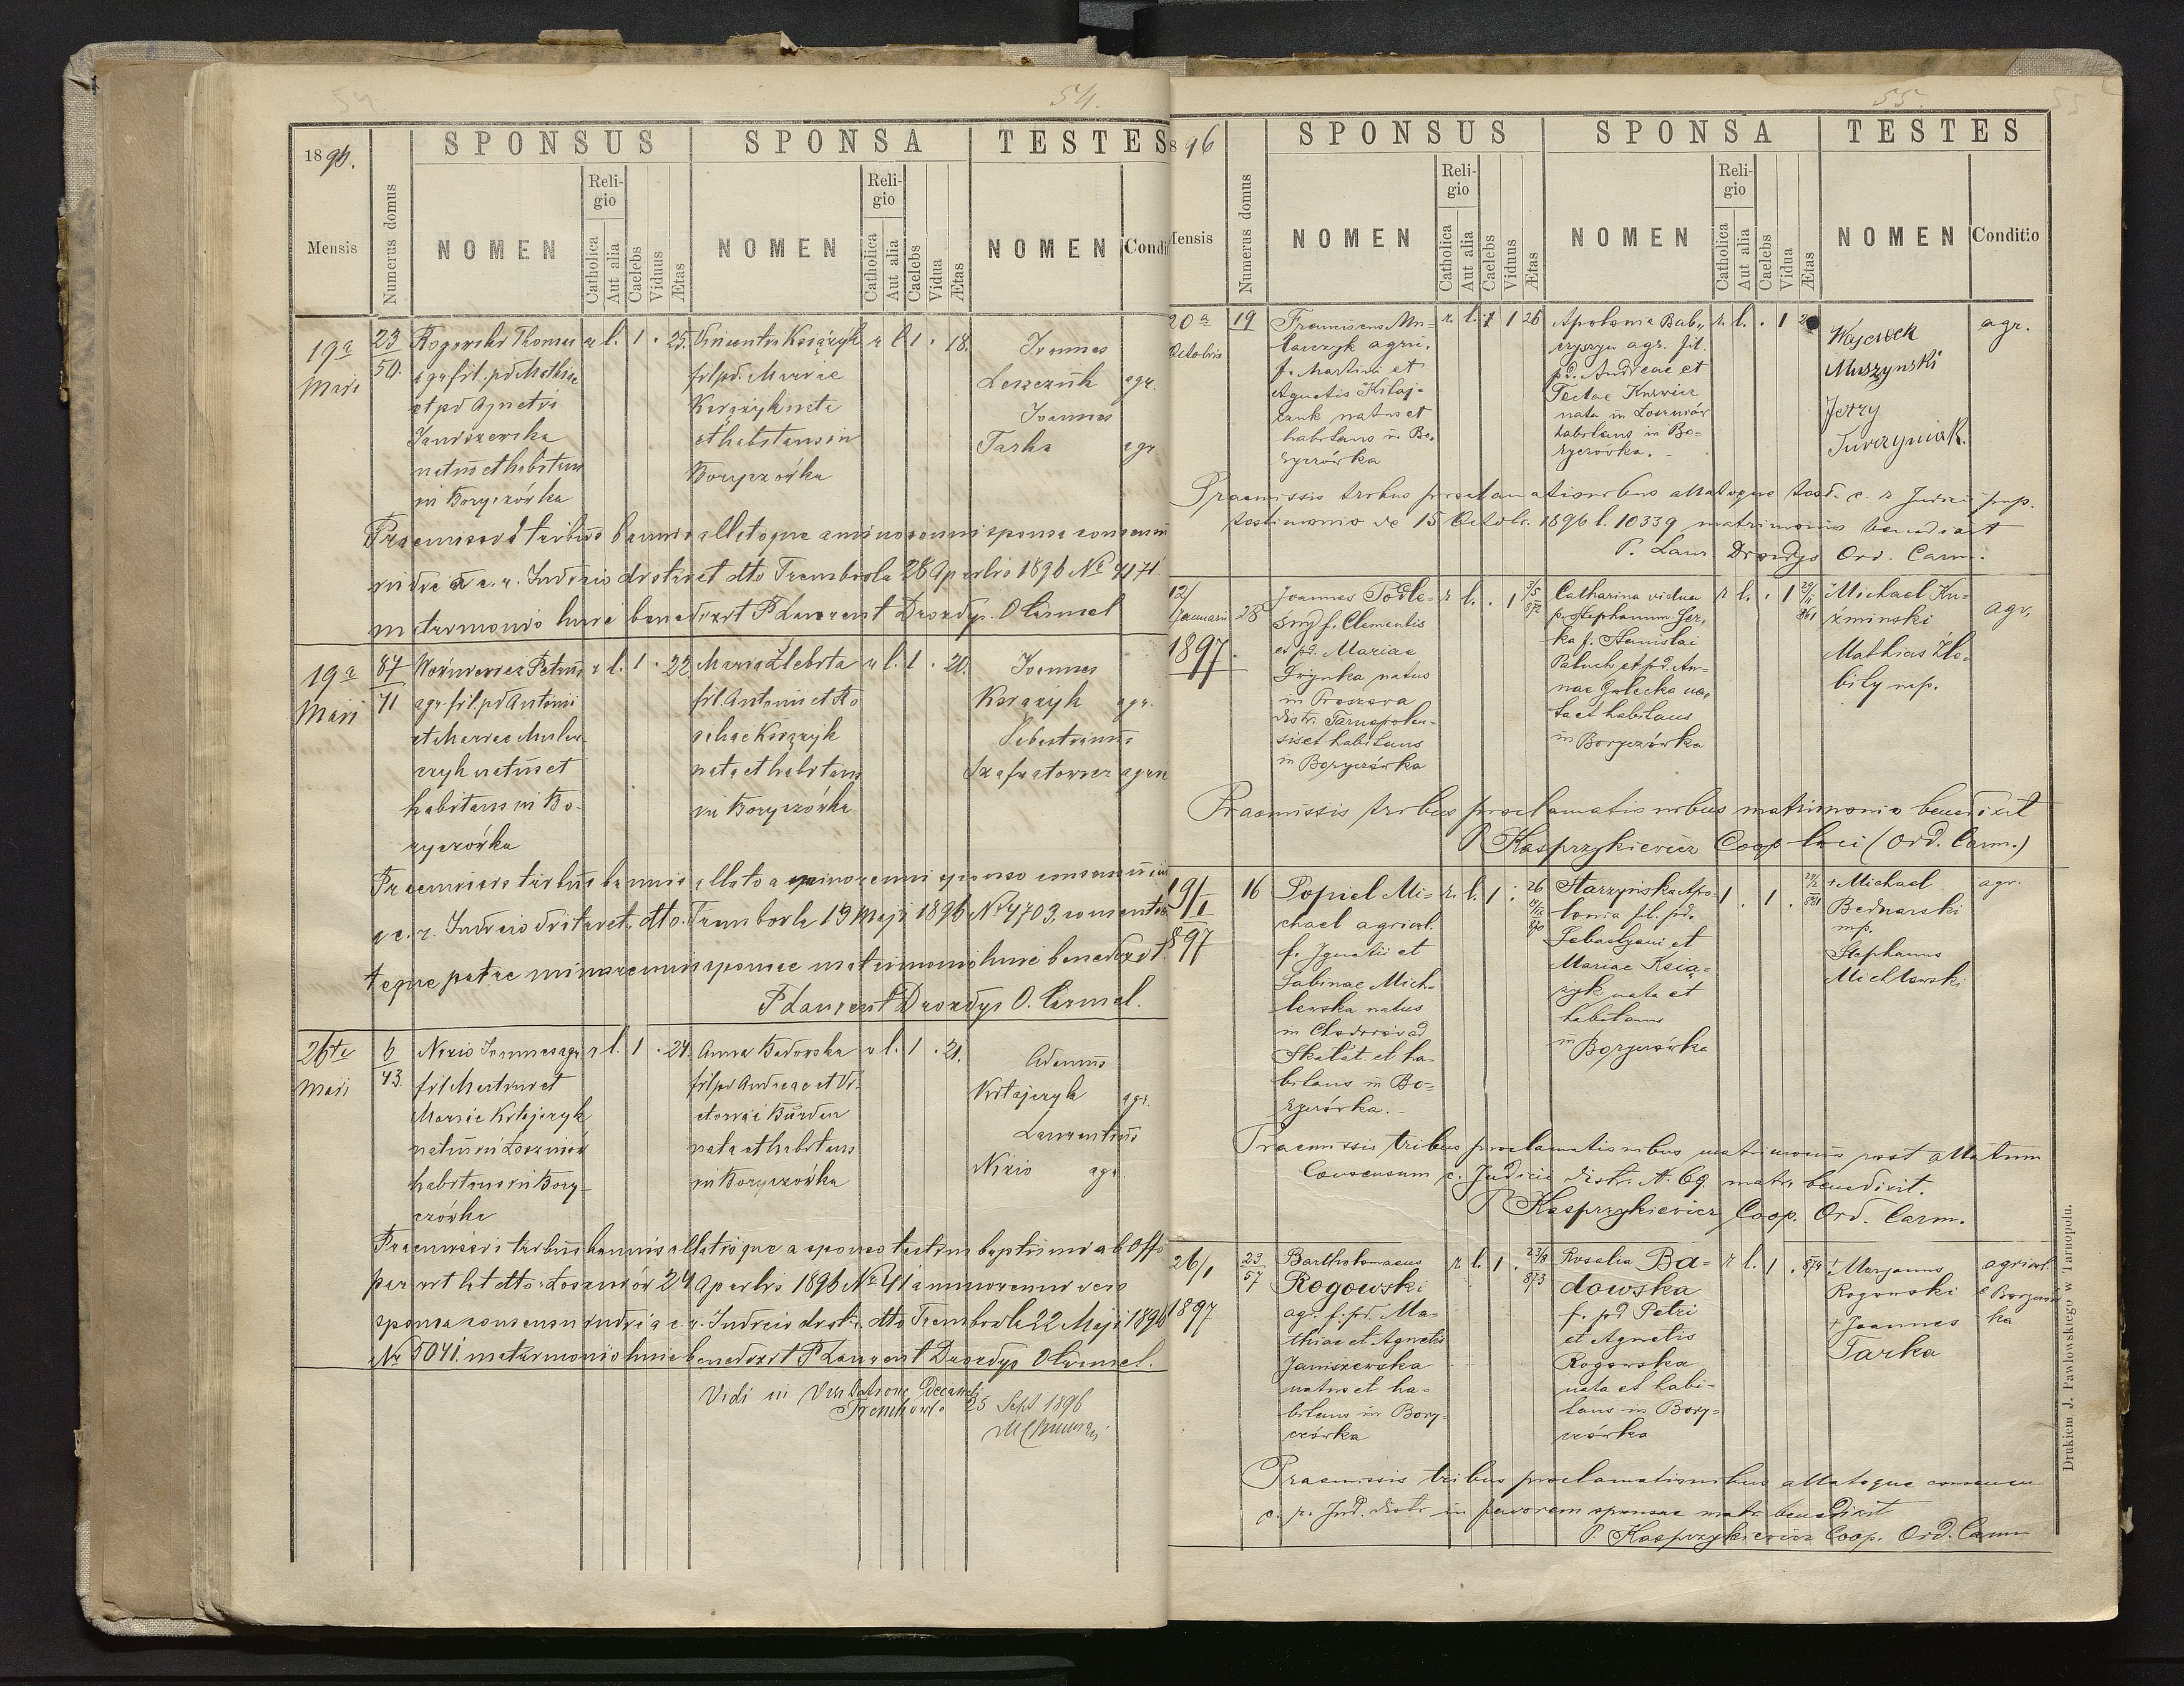 54.
1896.
SPONSUS
SPONSA
TESTES
Mensis
Numerus domus
NOMEN
Religio
Catholica
Aut alia
Caelebs
Viduus
Ætas
NOMEN
Religio
Catholica
Aut alia
Caelebs
Vidua
Ætas
NOMEN
Condi
19a
Maji
23
50.
Rogowski Thomas
agr fil. pd Mathiae
et pd Agnetis
Janiszewska
natus et habitans
in Boryczówka
r l. 1 . 25.
Vincentia Książyk
fil pd. Mariae
Książyk nata
et habitans in
Boryczówka
r l 1 . 18.
Joannes
Leszczuk agr.
Joannes
Tarka agr
Praemissis tribus bannis allatoque a minorenni sponsa consensu
iudic a c. r. Judicio district dto Trembowla 28 Aprilis 1896 No 4171
matrimonio huic benedixit P Laurent Drozdyo O Carmel
19a
Maji
87
71
Woźniewicz Petrus
agr. fil. pd Antonii
et Mariae
natus et
habitans in Bo-
ryczówka
r l. 1 . 22.
Maria Źlebita
fil. Antonii et Ro
saliae Książyk
nata et habitans
in Boryczówka
r l. 1 . 20.
Joannes
Książyk agr.
Sebastianus
agr
Praemissis tribus bannis allato a minorenni sponso consensu
a c. r. Judicio district. dto. Trembowla 19 Maji 1896 No 4703, consensu
teque patre minorennis sponsae matrimonio huic benedixit
P Laurent Drozdyo O. Carmel.
26te
Maji
6
43.
Nizio Joannes agr
fil Martini et
Mariae Kitajczyk
natus in Łoszniów
habitans in Bory-
czówka
r l. 1 . 24.
Anna Badowska
fil pd Andreae et Vi-
ctoriae Burda
nata et habitans
in Boryczówka
r l. 1 . 21.
Adamus
Kitajczyk agr.
Laurentius
Nizio agr.
Praemissis tribus bannis allatisque a sponso testim baptismi ab Offo
par. rit lat dto: Łoszniów 24 Aprilis 1896 No 41 a minorenni vero
sponsa consensu iudic a c. r. Judicio distr. dto Trembowla 22 Maji 1896
No 5041. matrimonio huic benedixit P Laurent Drozdyo O Carmel.
Vidi in Visitatione Decanali
Trembowla 25 Sept 1896
55.
1896
SPONSUS
SPONSA
TESTES
Mensis
Numerus domus
NOMEN
Religio
Catholica
Aut alia
Caelebs
Viduus
Ætas
NOMEN
Religio
Catholica
Aut alia
Caelebs
Vidua
Ætas
NOMEN
Conditio
20a
Octobris
19
Franciscus Mu-
larczyk agric.
f. Martini et
Agnetis Kitaj-
czuk natus et
habitans in Bo-
ryczówka
r. l. 1 26
Apolonia Bab-
agr. fil.
pd. Andreae et
Teclae
nata in Łoszniów
habitans in Bo-
ryczówka.
r. l. . 1
Wojciech
Muszyński
Jerzy
Turczyniak.
agr.
Praemissis tribus proclamationibus allatoque c. r. Judicii
testimonio de 15 Octobr. 1896 l. 10339 matrimonio benedixit
P. Laur. Drozdyo Ord. Carm.
12/
Januarii
1897.
28
Joannes Podle-
śny f. Clementis
et pd. Mariae
Hrynka natus
in Proszowa
distr. Tarnopolen-
sis et habitans
in Boryczówka
r l. . 1
3/5
872
Catharina vidua
p. Stephanum Ser-
ka f. Stanislai
Paluch et pd. An-
nae Golecka na-
ta et habitans
in Boryczówka
r l. . 1
29/11
861
Michael Ku-
źminski
Mathias Źle-
bity mp.
agr.
Praemissis tribus proclamationibus matrimonio benedixit
P Kasprzykiewicz Coop loci (Ord. Carm.)
19/1
897
16
Popiel Mi-
chael agricol.
f. Ignatii et
Sabinae Mich-
lewska natus
in Chodorów ad
Skałat. et ha-
bitans in Bo-
ryczówka.
r. l. 1 .
26
19/9
870
Starzyńska Apo-
lonia fil. pd.
Sebastyani et
Mariae Książ-
zyk nata et
habitans
in Boryczówka
1 . 1 .
24/2
881
+ Michael
Bednarski
mp.
Stephanus
Michlewski
agr.
Praemissis tribus proclamationibus matrimonii post allatum
Consensum c. Judicii distr. N. 69. matr. benedixit.
P Kasprzykiewicz Coop. Ord. Carm.
26/1
1897
23
57
Bartholomaeus
Rogowski
agr. f. pd. Ma-
thiae et Agnetis
Janiszewska
natus et ha-
bitans in Bory-
czówka
r. l. 1 .
23/8
873
Rosalia Ba-
dowska
f. pd Petri
et Agnetis
Rogowska
nata et habi-
tans in Bory-
czówka
r l. 1 . 874
+ Marjanus
Rogowski
+ Joannes
Tarka
agricol.
è Boryczów
ka
Praemissis tribus proclamationibus allatoque consensu
c. r. Jud. distr. in favorem sponsae matr. benedixit
P. Kasprzykiewicz Coop. Ord. Carm
Drukiem J. Pawłowskiego w Tarnopolu.